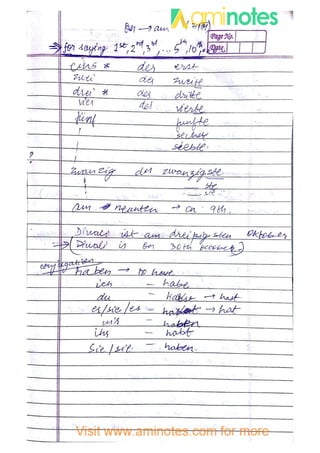 aminotes
on → am
Page No.
Date
⇒ for saying 1st, 2nd, 3rd, ... 5th, 10th
eins * der erst
zwei der zweite
drei * der dritte
vier der vierte
fünf fünfte
sechste
siebte
?
zwanzig der zwanzigste
ste
ste
am neunten → on 9th.
Diwali ist am dreißigsten Oktober
⇒ (Diwali is on 30th October)
conjugation
haben → to have
ich - habe
du - habst → hast
er/sie/es - habt → hat
wir - haben
ihr - habt
Sie/sie - haben.
Visit www.aminotes.com for more